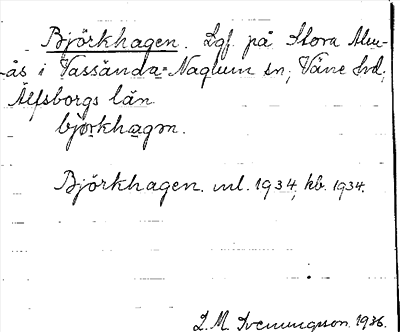 Björkhagen. Lgf. på Stora Alm-
ås i Vassända-Naglum sn, Väne hd,
Älfsborgs län.
bjo̤rkhagen.
Björkhagen. ml. 1934, kb. 1934.
L. M. Svenungsson. 1936.